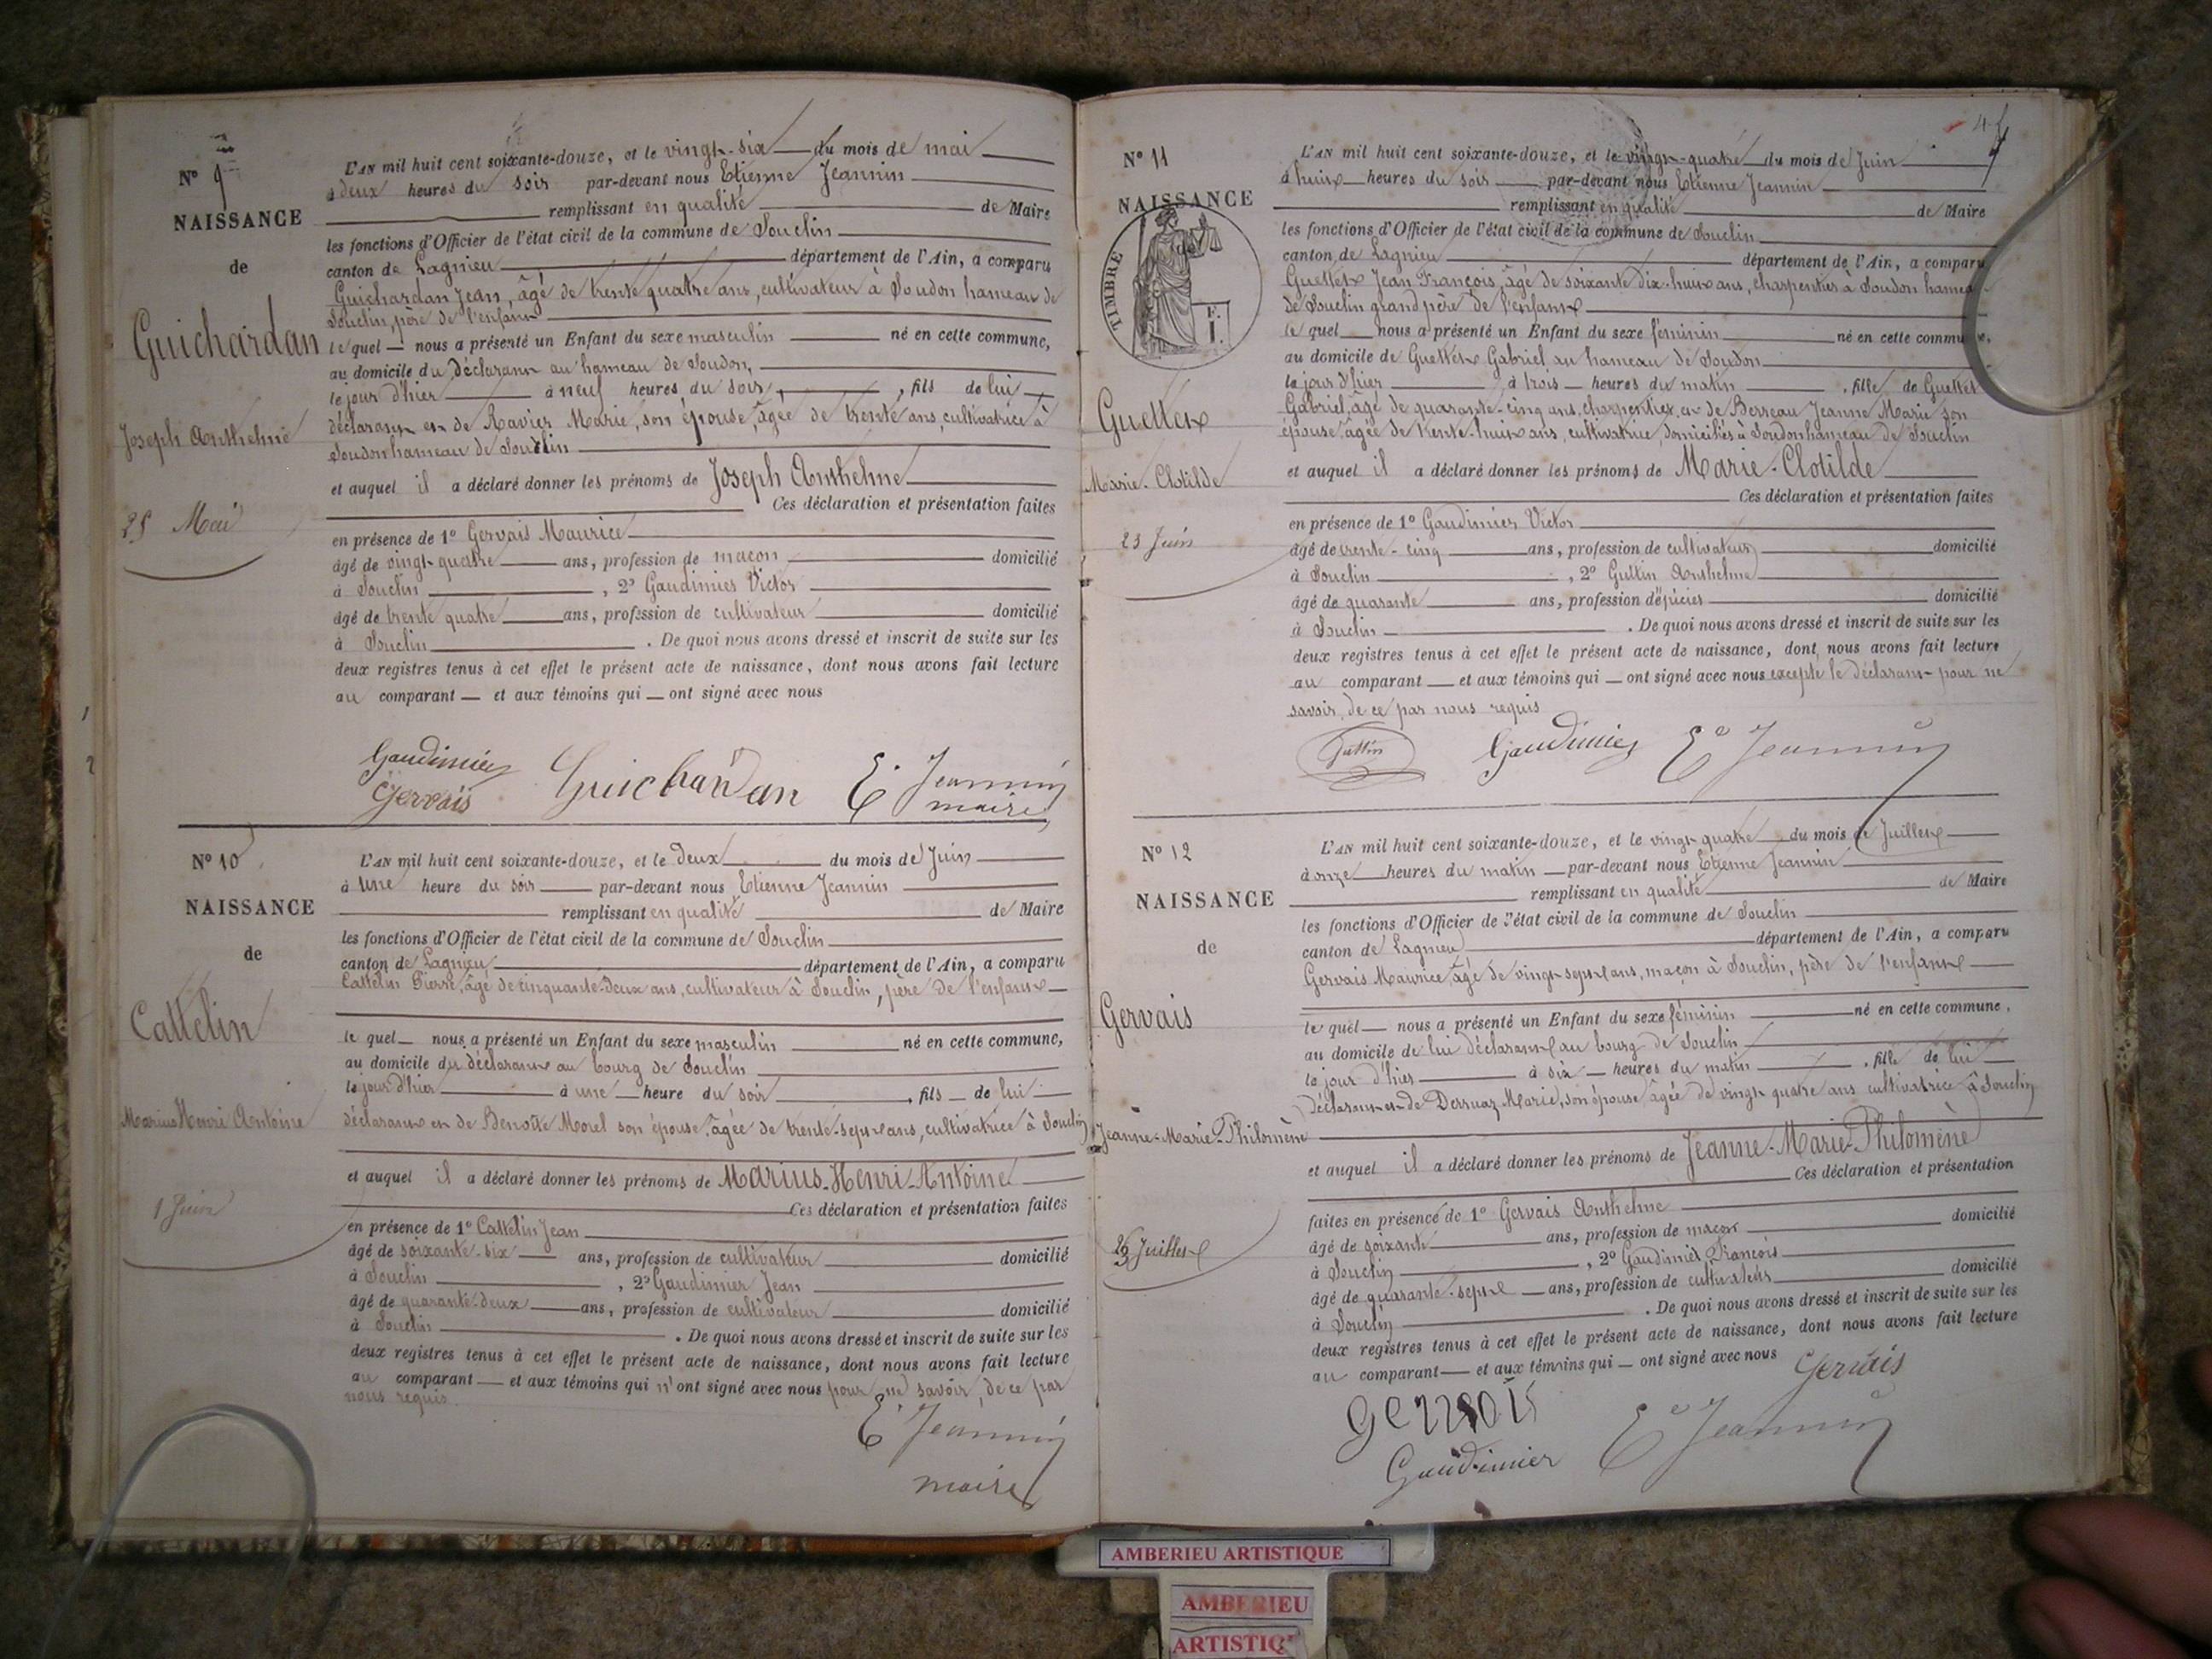 Nº 9
NAISSANCE
de
Guichardan
Joseph Anthelme
25 Mai
L'AN mil huit cent soixante-douze, et le vingt-six du mois de mai
à deux heures du soir par-devant nous Etienne Jeannin
remplissant en qualité de Maire
les fonctions d'Officier de l'état civil de la commune de Souclin
canton de Lagnieu département de l'Ain, a comparu
Guichardan Jean, âgé de trente quatre ans, cultivateur à Soudon hameau de
Souclin, père de l'enfant
le quel nous a présenté un Enfant du sexe masculin né en cette commune,
au domicile du déclarant au hameau de Soudon,
le jour d'hier à neuf heures du soir, fils de lui
déclarant et de Ravier Marie, son épouse, âgée de trente ans, cultivatrice à
Soudon hameau de Souclin
et auquel il a déclaré donner les prénoms de Joseph Anthelme
Ces déclaration et présentation faites
en présence de 1º Gervais Maurice
âgé de vingt-quatre ans, profession de maçon domicilié
à Souclin, 2º Gaudimier Victor
âgé de trente quatre ans, profession de cultivateur domicilié
à Souclin. De quoi nous avons dressé et inscrit de suite sur les
deux registres tenus à cet effet le présent acte de naissance, dont nous avons fait lecture
au comparant et aux témoins qui ont signé avec nous
Gaudimier
Gervais
Guichardan
Ee Jeannin
maire
Nº 10
NAISSANCE
de
Cattelin
Marius Henri Antoine
1 Juin
L'AN mil huit cent soixante-douze, et le deux du mois de Juin
à une heure du soir par-devant nous Etienne Jeannin
remplissant en qualité de Maire
les fonctions d'Officier de l'état civil de la commune de Souclin
canton de Lagnieu département de l'Ain, a comparu
Cattelin Pierre, âgé de cinquante-deux ans, cultivateur à Souclin, père de l'enfant
le quel nous a présenté un Enfant du sexe masculin né en cette commune,
au domicile du déclarant au bourg de Souclin
le jour d'hier à une heure du soir, fils de lui
déclarant et de Benoîte Morel son épouse, âgée de trente-sept ans, cultivatrice à Souclin
et auquel il a déclaré donner les prénoms de Marius-Henri-Antoine
Ces déclaration et présentation faites
en présence de 1º Cattelin Jean
âgé de soixante-six ans, profession de cultivateur domicilié
à Souclin, 2º Gaudimier Jean
âgé de quarante-deux ans, profession de cultivateur domicilié
à Souclin. De quoi nous avons dressé et inscrit de suite sur les
deux registres tenus à cet effet le présent acte de naissance, dont nous avons fait lecture
au comparant et aux témoins qui n'ont signé avec nous pour ne savoir, de ce par
nous requis.
Ee Jeannin
maire
4
Nº 11
NAISSANCE
TIMBRE
F.
I.
Guettet
Marie-Clotilde
23 Juin
L'AN mil huit cent soixante-douze, et le vingt-quatre du mois de Juin
à huit heures du soir par-devant nous Etienne Jeannin
remplissant en qualité de Maire
les fonctions d'Officier de l'état civil de la commune de Souclin
canton de Lagnieu département de l'Ain, a comparu
Guettet Jean François, âgé de soixante dix-huit ans, charpentier à Soudon hameau
de Souclin grand père de l'enfant
le quel nous a présenté un Enfant du sexe féminin né en cette commune,
au domicile de Guettet Gabriel au hameau de Soudon
le jour d'hier à trois heures du matin, fille de Guettet
Gabriel, âgé de quarante-cinq ans, charpentier, et de Berreau Jeanne Marie son
épouse, âgée de trente-huit ans, cultivatrice, domiciliés à Soudon hameau de Souclin
et auquel il a déclaré donner les prénoms de Marie-Clotilde
Ces déclaration et présentation faites
en présence de 1º Gaudimier Victor
âgé de trente-cinq ans, profession de cultivateur domicilié
à Souclin, 2º Guttin Anthelme
âgé de quarante ans, profession d'épicier domicilié
à Souclin. De quoi nous avons dressé et inscrit de suite sur les
deux registres tenus à cet effet le présent acte de naissance, dont nous avons fait lecture
au comparant et aux témoins qui ont signé avec nous excepté le déclarant pour ne
savoir, de ce par nous requis
Guttin
Gaudimier
Ee Jeannin
Nº 12
NAISSANCE
de
Gervais
Jeanne-Marie-Philomène
23 Juillet
L'AN mil huit cent soixante-douze, et le vingt-quatre du mois de Juillet
à onze heures du matin par-devant nous Etienne Jeannin
remplissant en qualité de Maire
les fonctions d'Officier de l'état civil de la commune de Souclin
canton de Lagnieu département de l'Ain, a comparu
Gervais Maurice, âgé de vingt-sept ans, maçon à Souclin, père de l'enfant
le quel nous a présenté un Enfant du sexe féminin né en cette commune,
au domicile de lui déclarant au bourg de Souclin
le jour d'hier à six heures du matin, fille de lui
déclarant et de Derruaz Marie, son épouse âgée de vingt quatre ans cultivatrice à Souclin
et auquel il a déclaré donner les prénoms de Jeanne-Marie-Philomène
Ces déclaration et présentation
faites en présence de 1º Gervais Anthelme
âgé de soixante ans, profession de maçon domicilié
à Souclin, 2º Gaudimier François
âgé de quarante-sept ans, profession de cultivateur domicilié
à Souclin. De quoi nous avons dressé et inscrit de suite sur les
deux registres tenus à cet effet le présent acte de naissance, dont nous avons fait lecture
au comparant et aux témoins qui ont signé avec nous
Gervais
Gervais
Gaudimier
Ee Jeannin
AMBERIEU ARTISTIQUE
AMBERIEU
ARTISTIQ